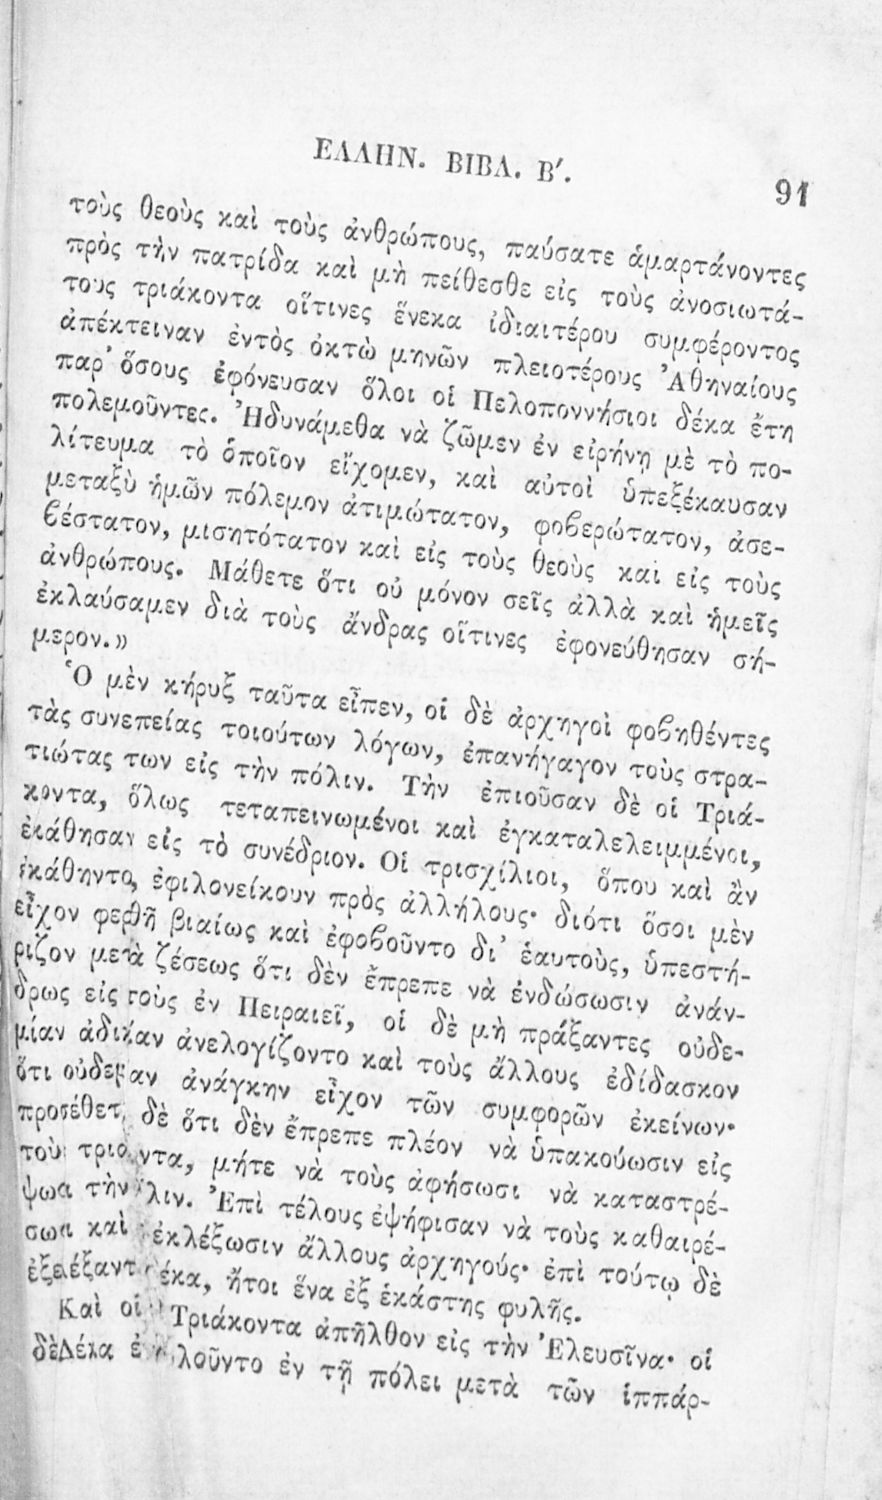 ΕΛΛΗΝ. ΒΙΒΛ. Β′.
91
τοὺς θεοὺς καὶ τοὺς ἀνθρώπους, παύσατε ἁμαρτάνοντες
πρὸς τὴν πατρίδα καὶ μὴ πείθεσθε εἰς τοὺς ἀνοσιωτά-
τους τριάκοντα οἵτινες ἕνεκα ἰδιαιτέρου συμφέροντος
ἀπέκτειναν ἐντὸς ὀκτὼ μηνῶν πλειοτέρους Ἀθηναίους
παρ' ὅσους ἐφόνευσαν ὅλοι οἱ Πελοποννήσιοι δέκα ἔτη
πολεμοῦντες. Ἠδυνάμεθα νὰ ζῶμεν ἐν εἰρήνῃ μὲ τὸ πο-
λίτευμα τὸ ὁποῖον εἴχομεν, καὶ αὐτοὶ ὑπεξέκαυσαν
μεταξὺ ἡμῶν πόλεμον ἀτιμώτατον, φοβερώτατον, ἀσε-
βέστατον, μισητότατον καὶ εἰς τοὺς θεοὺς καὶ εἰς τοὺς
ἀνθρώπους. Μάθετε ὅτι οὐ μόνον σεῖς ἀλλὰ καὶ ἡμεῖς
ἐκλαύσαμεν διὰ τοὺς ἄνδρας οἵτινες ἐφονεύθησαν σή-
μερον.»
Ὁ μὲν κήρυξ ταῦτα εἶπεν, οἱ δὲ ἀρχηγοὶ φοβηθέντες
τὰς συνεπείας τοιούτων λόγων, ἐπανήγαγον τοὺς στρα-
τιώτας των εἰς τὴν πόλιν. Τὴν ἐπιοῦσαν δὲ οἱ Τριά-
κοντα, ὅλως τεταπεινωμένοι καὶ ἐγκαταλελειμμένοι,
ἐκάθησαν εἰς τὸ συνέδριον. Οἱ τρισχίλιοι, ὅπου καὶ ἂν
ἐκάθηντο, ἐφιλονείκουν πρὸς ἀλλήλους· διότι ὅσοι μὲν
εἶχον φερθῆ βιαίως καὶ ἐφοβοῦντο δι' ἑαυτοὺς, ὑπεστή-
ριζον μετὰ ζέσεως ὅτι δὲν ἔπρεπε νὰ ἐνδώσωσιν ἀνάν-
δρως εἰς τοὺς ἐν Πειραιεῖ, οἱ δὲ μὴ πράξαντες οὐδε-
μίαν ἀδικίαν ἀνελογίζοντο καὶ τοὺς ἄλλους ἐδίδασκον
ὅτι ἀνάγκην εἶχον τῶν συμφορῶν ἐκείνων·
δὲ ὅτι δὲν ἔπρεπε πλέον νὰ ὑπακούωσιν εἰς
μήτε νὰ τοὺς ἀφήσωσι νὰ καταστρέ-
τὴν Ἐπὶ τέλους ἐψήφισαν νὰ τοὺς καθαιρέ-
καὶ ἐκλέξωσιν ἄλλους ἀρχηγούς· ἐπὶ τούτῳ δὲ
ἤτοι ἕνα ἐξ ἑκάστης φυλῆς.
Καὶ οἱ Τριάκοντα ἀπῆλθον εἰς τὴν Ἐλευσῖνα· οἱ
δὲ Δέκα ἐν τῇ πόλει μετὰ τῶν ἱππάρ-